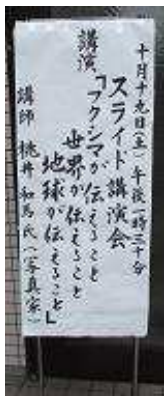 十月十九日（土）午後一時三十分
スライド講演会
講演
「フクシマが伝えること
世界が伝えること
地球が伝えること」
講師 桃井和馬氏（写真家）